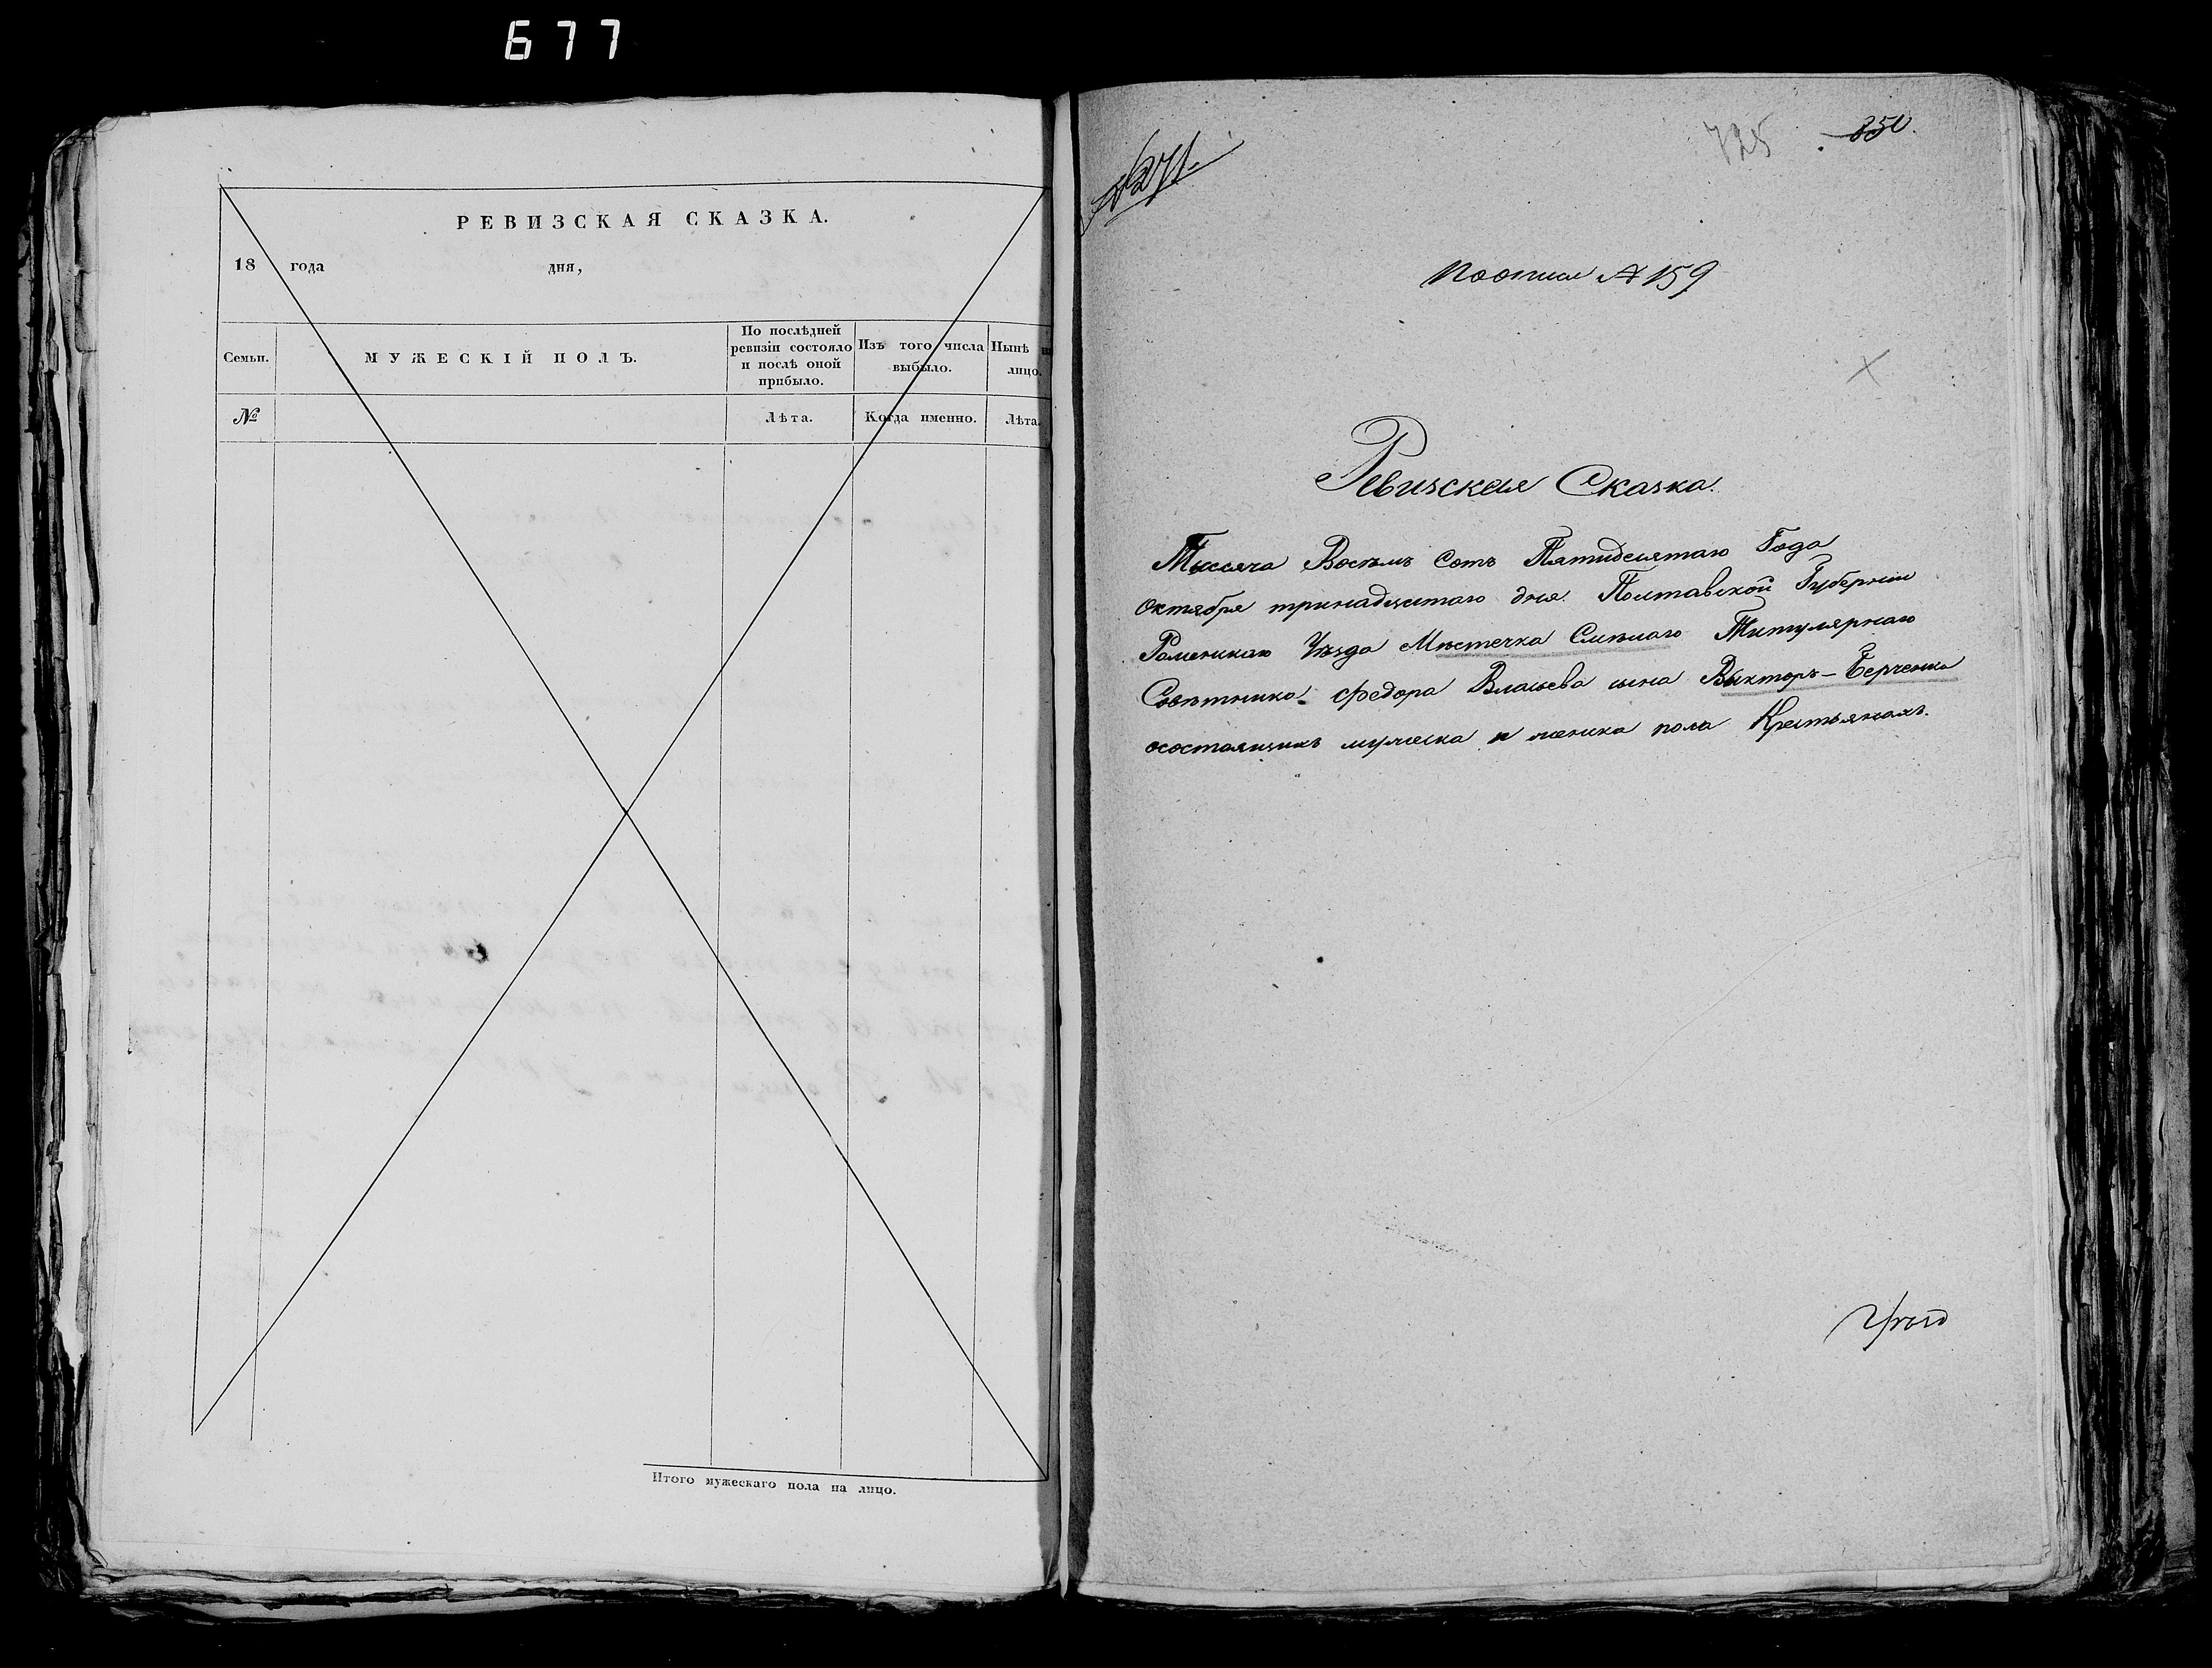 677
РЕВИЗСКАЯ СКАЗКА.
18 года дня,
Семьи.
МУЖЕСКІЙ ПОЛЪ.
По послѣдней
ревизіи состояло
и послѣ оной
прибыло.
Изъ того числа
выбыло.
Нынѣ
лицо.
№
Лѣта.
Когда именно.
Лѣта.
Итого мужескаго пола на лицо.
№271.
725
850.
По описи № 159
Ревизская Сказка.
Тысяча Восемь сотъ Пятидесятаго Года
Октября тринадцатаго дня. Полтавской Губерніи
Роменскаго Уѣзда Мѣстечка Смѣлаго Титулярнаго
Совѣтника Федора Власьева сына Викторъ-Берченка
осостоящихъ мужеска и женска пола Крестьянахъ.